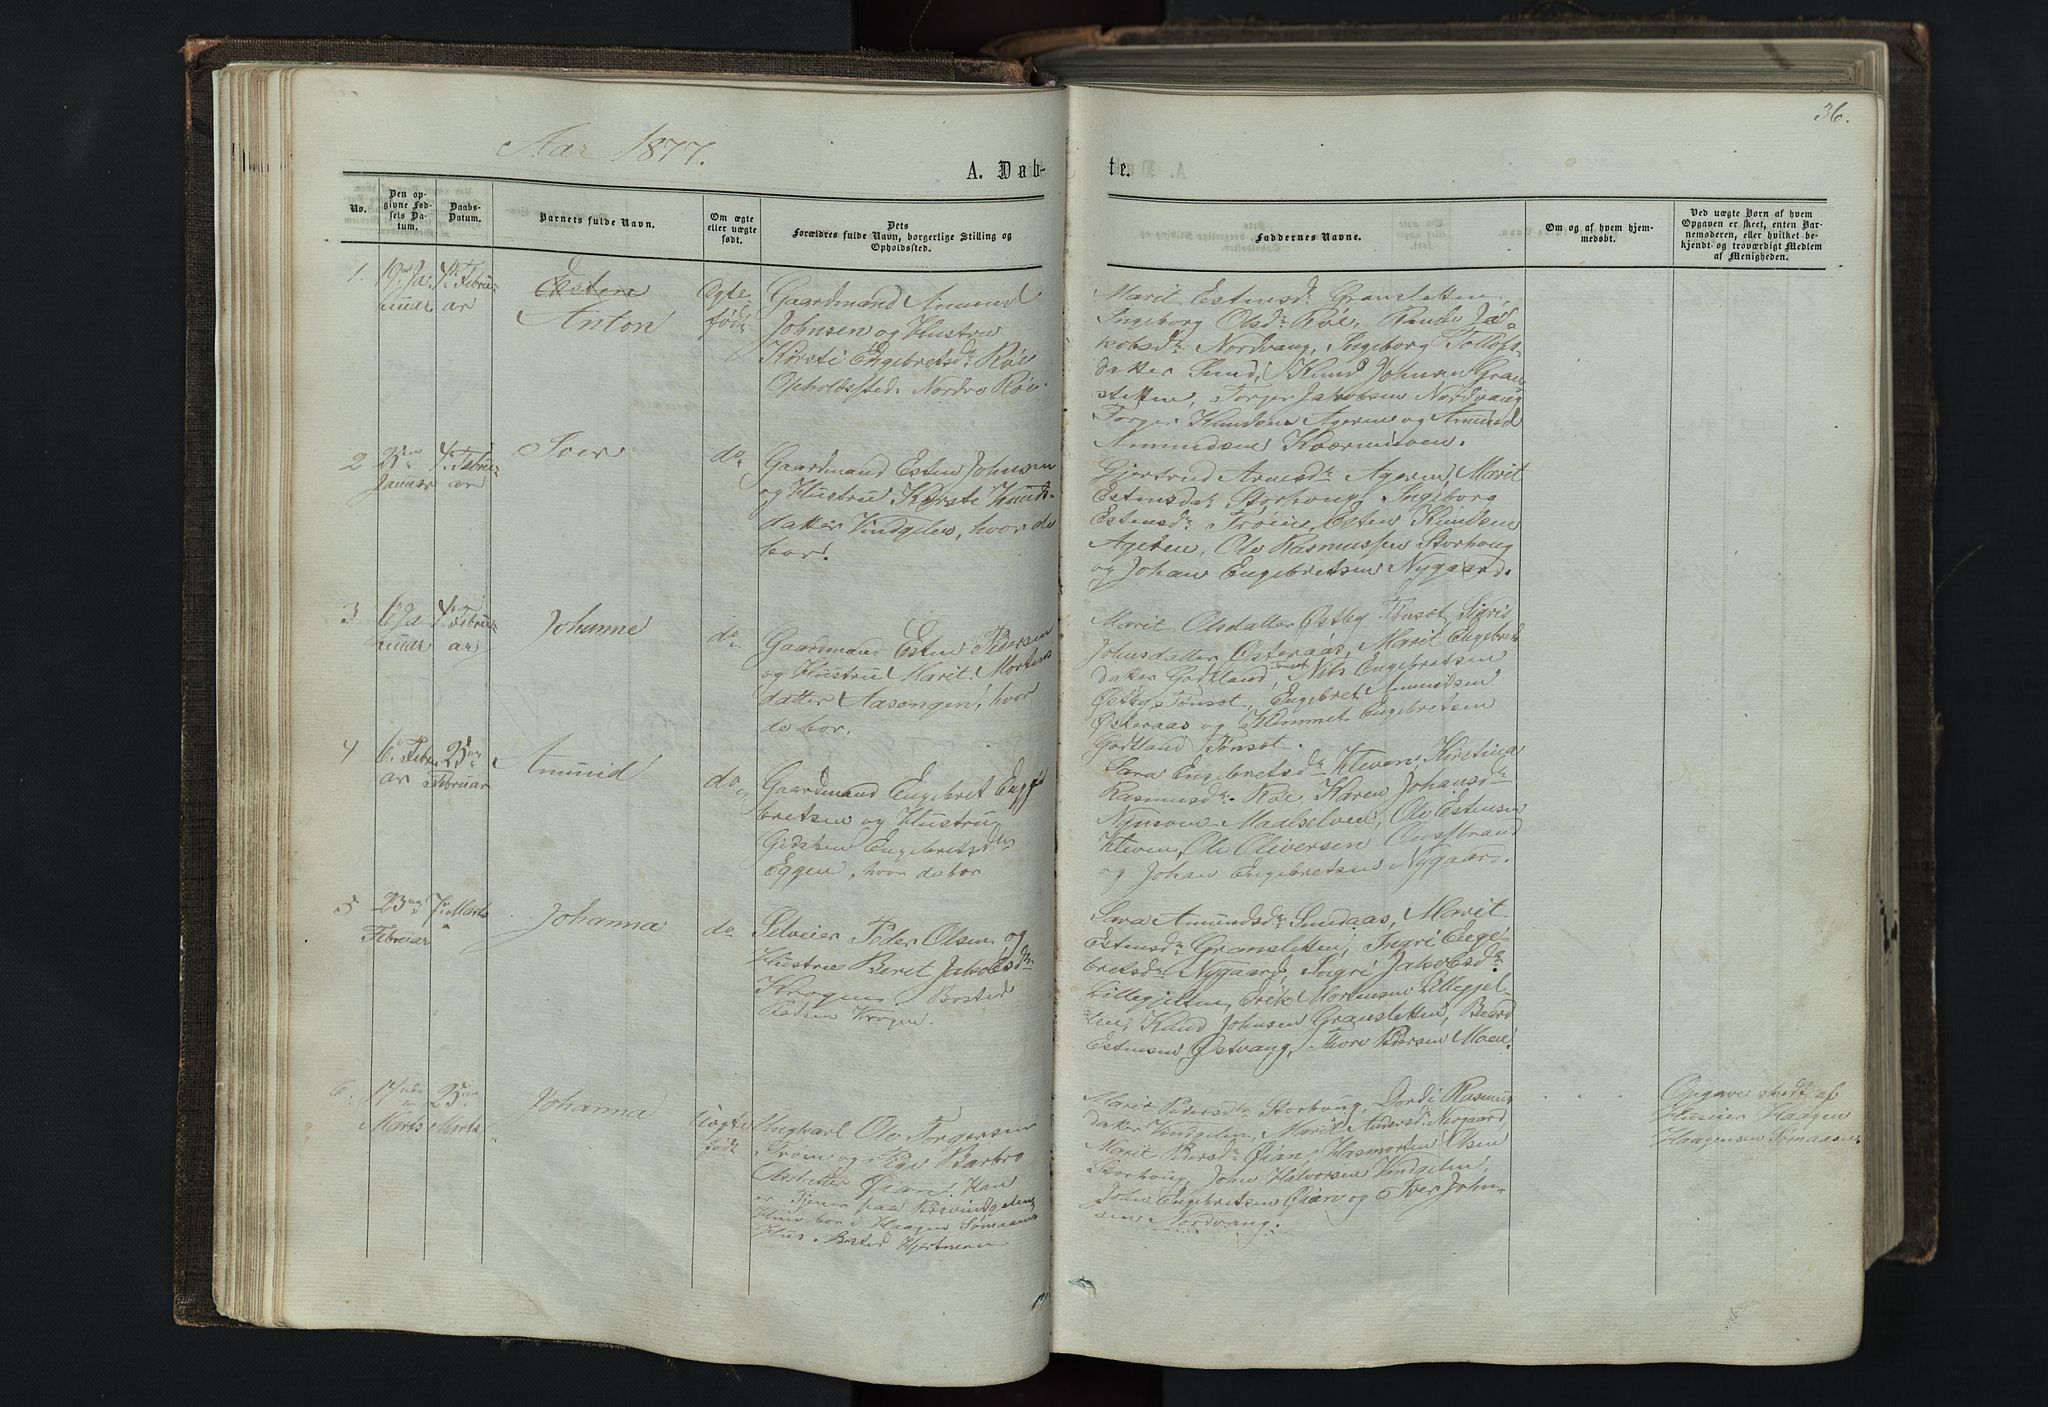 36.
Aar 1877.
A. Døb-
te.
No.
Den op-
givne Fød-
sels Da-
tum.
Daabs-
Datum.
Barnets fulde Navn.
Om ægte
eller uægte
født.
Dets
Forældres fulde Navn, borgerlige Stilling og
Opholdssted.
Faddernes Navne.
Om og af hvem hjem-
medøbt.
Ved uægte Børn af hvem
Opgaven er skeet, enten Bar-
nemoderen, eller hvilket be-
kjendt og troværdigt Medlem
af Menigheden.
1.
19. Ja-
nuar
4. Febru-
ar
Esten
Anton
Ægte
født
Gaardmand Amund
Johnsen og Hustru
Kirsti Engebretsdr Røe
Opholdssted: Nordre Røe.
Marit Estensdr Gransletten,
Ingeborg Olsdr Røe, Ja-
kobsdr Nordvang, Ingeborg Tollefs-
datter Sund, Knud Johnsen Gran-
sletten, Torger Jakobsen Nordvang
Torger Knudsen Ageren og Amund
Amundsen
2
Januar
4. Febru-
ar
Iver
do
Gaardmand Esten Johnsen
og Hustru Kirsti Knuds-
datter Vindgelen, hvor de
bor.
Gjertrud Arnesdr Ageren, Marit
Estensdr Storhoug, Ingeborg
Estensdr Trøen, Esten Knudsen
Ageren, Ole Rasmussen Storhoug
og Johan Engebretsen Nygaard.
3
6 Ja-
nuar
4. Febru-
ar
Johanne
do
Gaardmand Esten Pedersen
og Hustru Marit Mortens
datter Aasengen, hvor
de bor.
Marit Olsdatter Østby Tønset, Sigrid
Johnsdatter Østeraas, Marit Engebrets
datter Godtland, Tønset Nils Engebretsen
Østby Tønset, Engebret Amundsen
Østeraas og Hemmet Engebretsen
Godtland Tønset.
4
6. Febru-
ar
25
Februar
Amund
do
Gaardmand Engebret Enge-
bretsen og Hustru
Engebretsdr
Eggen, hvor de bor
Sara Engebretsdr Kleven, Kirstina
Rasmusdr. Røe, Karen Johansdr
Nymoen Maalselven, Ole Estensen
Kleven, Ole Oliversen
og Johan Engebretsen Nygaard.
5
23
Februar
Marts
Johanna
do
Selveier Peder Olsen og
Hustru Beret Jakobsdr
Krogen Bosted
Krogen.
Sara Amundsdr Sundaas, Marit
Estensdr Gransletten, Ingri Enge-
bretsdr Nygaard, Ingri Jakobsdr
Lillegjelten, Erik Mortensen Lillegjel-
ten, Knud Johnsen Gransletten, Baard
Estensen Østvang, Thore Pedersen Moen.
6.
17
Marts
25
Marts
Johanna
Uægte
født
Ungkarl Ole Torgersen
Trøen og Pige Barbro
Olsdatter Øian. Han
er Tjener paa
Hun bor i Haagen Sømaaens
Hus. Bosted
Marit Pedersdr Storhoug, Dordi Rasmus
datter Vindgelen, Marit Andersdr Nergaard,
Marit Pedersdr Øian, Olsen
Storhoug, John Halvorsen Vindgelen,
John Engebretsen Øian og Iver John-
sen Nordvang.
Opgaven skedt af
Huseier Haagen
Haagensen Sømaaen